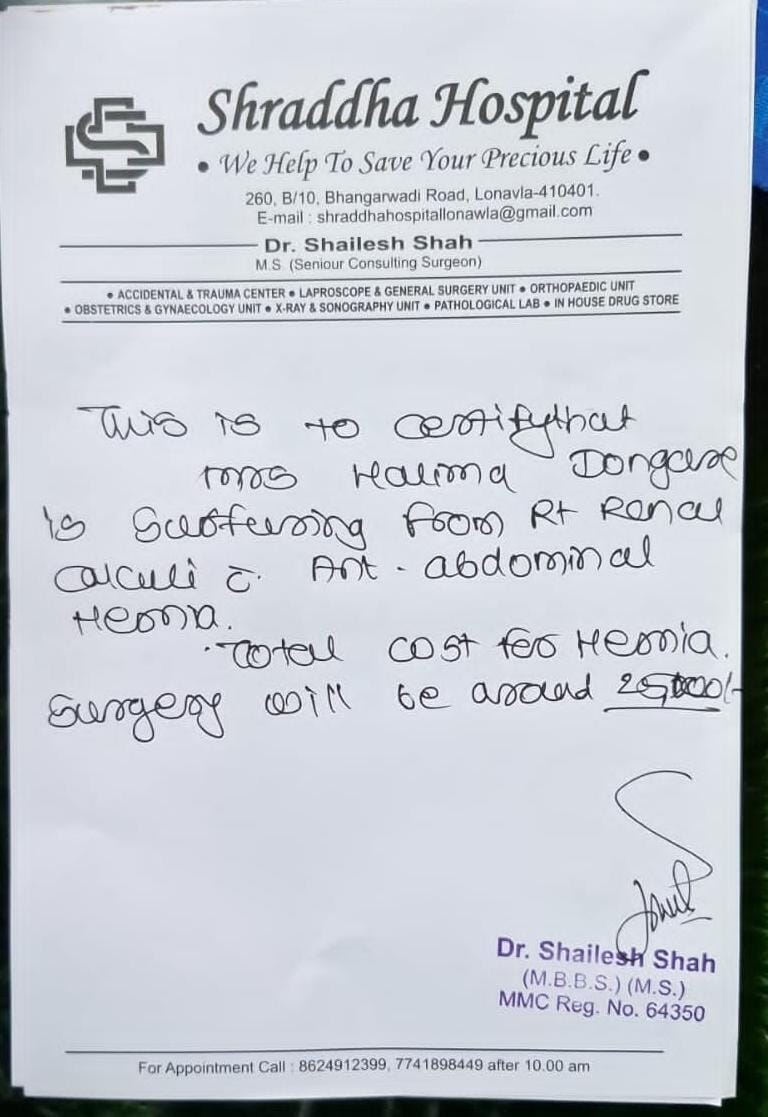 Shraddha Hospital
• We Help To Save Your Precious Life •
260, B/10, Bhangarwadi Road, Lonavla-410401.
E-mail : shraddhahospitallonawla@gmail.com
Dr. Shailesh Shah
M.S (Seniour Consulting Surgeon)
• ACCIDENTAL & TRAUMA CENTER • LAPROSCOPE & GENERAL SURGERY UNIT • ORTHOPAEDIC UNIT
• OBSTETRICS & GYNAECOLOGY UNIT • X-RAY & SONOGRAPHY UNIT • PATHOLOGICAL LAB • IN HOUSE DRUG STORE
This is to certify that
Mrs Halima Dongare
is suffering from Rt Renal
calculi c̄. Ant. abdominal
Hernia.
Total cost for Hernia.
Surgery will be around
Dr. Shailesh Shah
(M.B.B.S.) (M.S.)
MMC Reg. No. 64350
For Appointment Call : 8624912399, 7741898449 after 10.00 am